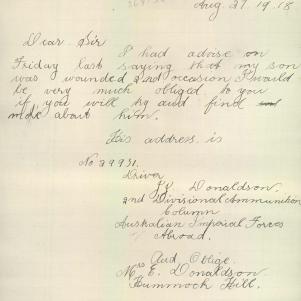 Aug 27. 19.18
Dear Sir
I had advise on
Friday last saying that my son
was wounded 2nd occasion I would
be very much obliged to you
if you will try and find
more about him.
His address is
No 29931.
Driver
Donaldson.
2nd Divisional Ammunition
Column
Australian Imperial Forces
Abroad.
And Oblige.
Mrs E. Donaldson
Hummock Hill.